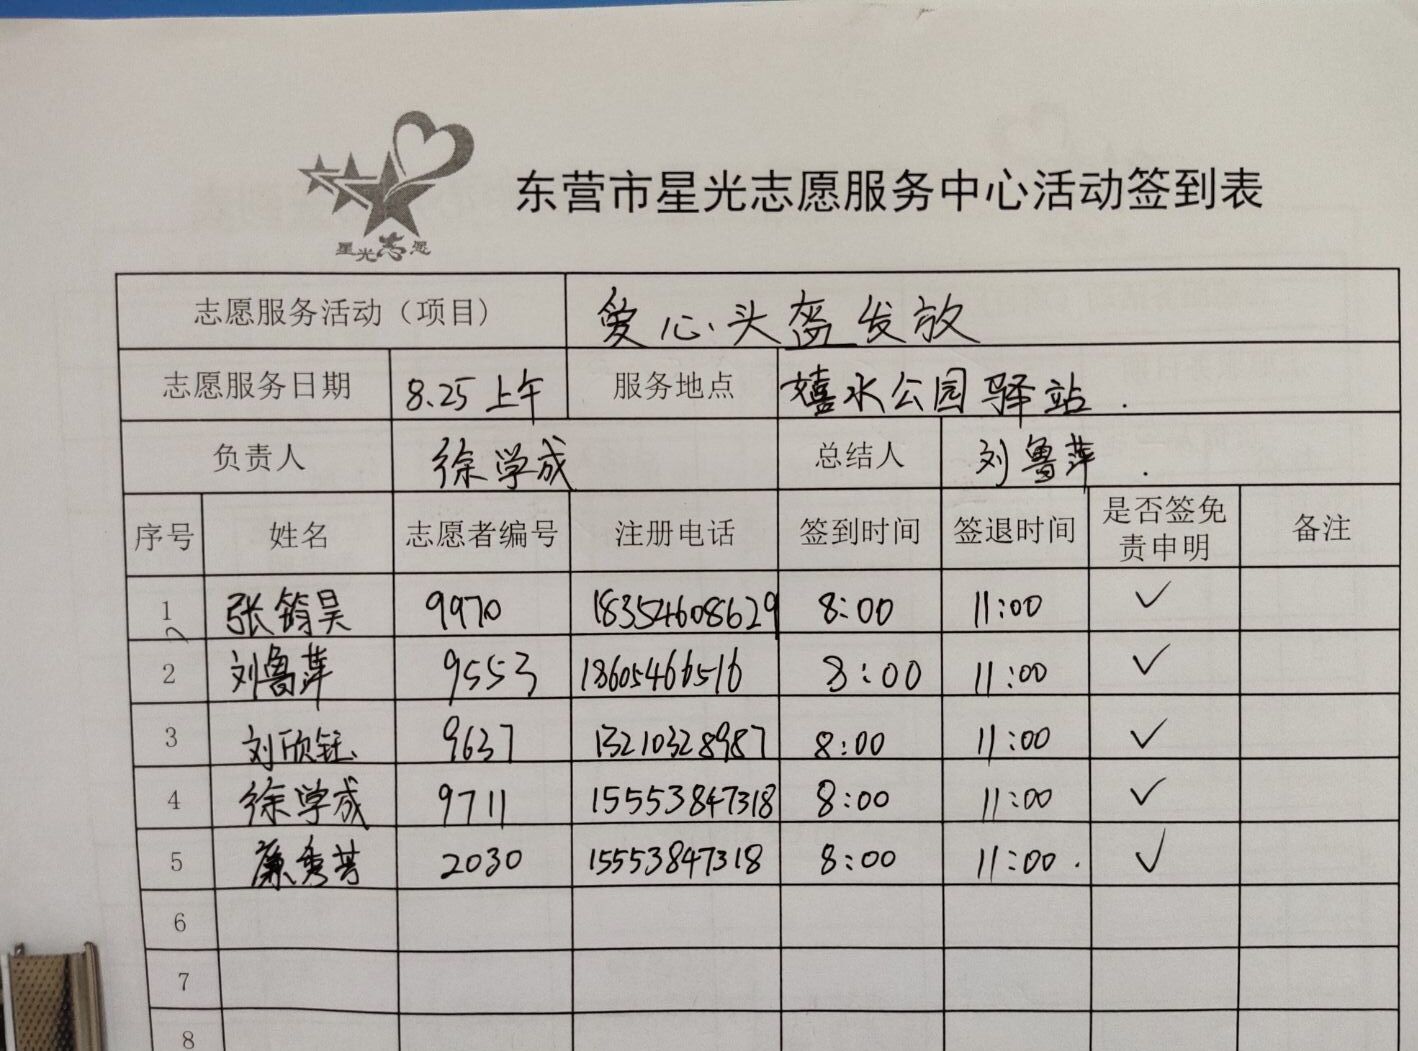 星光志愿
东营市星光志愿服务中心活动签到表
志愿服务活动（项目） 爱心头盔发放
志愿服务日期 8.25上午 服务地点 嬉水公园驿站.
负责人 徐学成 总结人 刘鲁萍.
序号 姓名 志愿者编号 注册电话 签到时间 签退时间 是否签免责申明 备注
1 张筠昊 9970 18354608629 8:00 11:00 ✓
2 刘鲁萍 9553 18605466516 8:00 11:00 ✓
3 刘欣钰 9637 13210328987 8:00 11:00 ✓
4 徐学成 9711 15553847318 8:00 11:00 ✓
5 廉秀芳 2030 15553847318 8:00 11:00. ✓
6
7
8